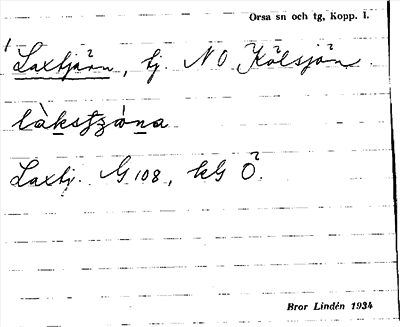 Orsa sn och tg, Kopp. I.
Laxtjärn, tj. NO Kölsjön.
Laxtj. G 108, kG Ö.
Bror Lindén 1934